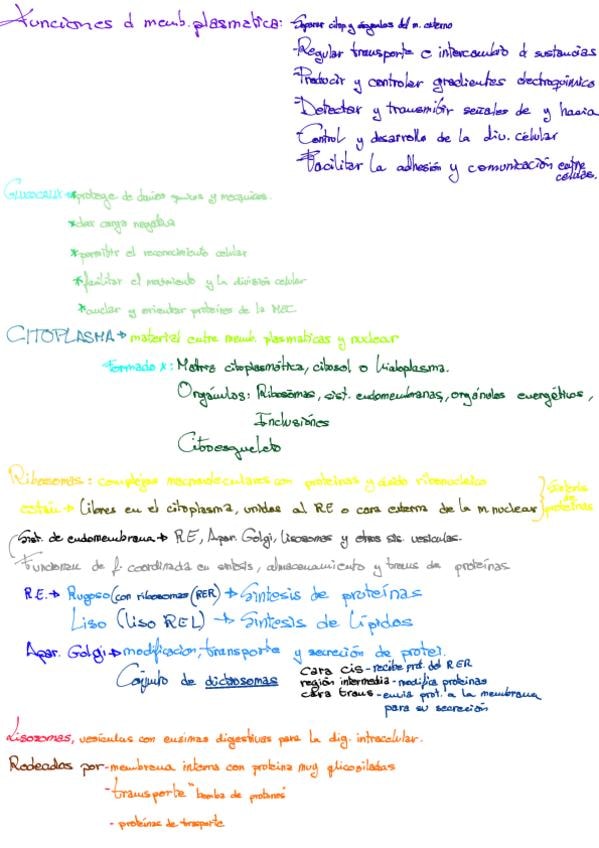 Funciones d memb. plasmatica: - Separar citop y orgánulos del m. externo
- Regular transporte e intercambio d sustancias
- Producir y controlar gradientes electroquimico
- Detectar y transmitir señales de y hacia
- Control y desarrollo de la div. célular
- Facilitar la adhesión y comunicación entre celulas.
GLUCOCALIX → *protege de daños y mequicos.
*dar carga negativa
*permitir el reconocimiento celular
*facilitar el movimiento y la división celular
*anclar y orientar proteinas de la MEC
CITOPLASMA → material entre memb. plasmaticas y nuclear
Formado x: Matriz citoplasmática, citosol o hialoplasma.
Orgánulos: Ribosomas, sist. endomembranas, orgánulos energéticos,
Inclusiónes
Citoesqueleto
Ribosomas: complejos macromoleculares con proteinas y ácido ribonucleico
estan → Libres en el citoplasma, unidas al RE o cara externa de la m. nuclear } síntesis de proteínas
Sist. de endomembrana → RE, Apar. Golgi, lisosomas y otros sis. vesículas.
Funcionan de f. coordinada en sintesis, almacenamiento y trans de proteínas.
R.E. → Rugoso (con ribosomas (RER) → Síntesis de proteínas
Liso (liso REL) → Síntesis de Lípidos
Apar. Golgi → modificacion, transporte y secreción de protei.
Conjunto de dictiosomas
cara cis - recibe prot. del RER
región intermedia - modifica proteinas
cara trans - envia prot. a la membrana
para su secreción
Lisosomas, vesículas con enzimas digestivas para la dig. intracelular.
Rodeados por - membrana interna con proteina muy glicosiladas
- transporte "bomba de protones"
- proteínas de trasporte